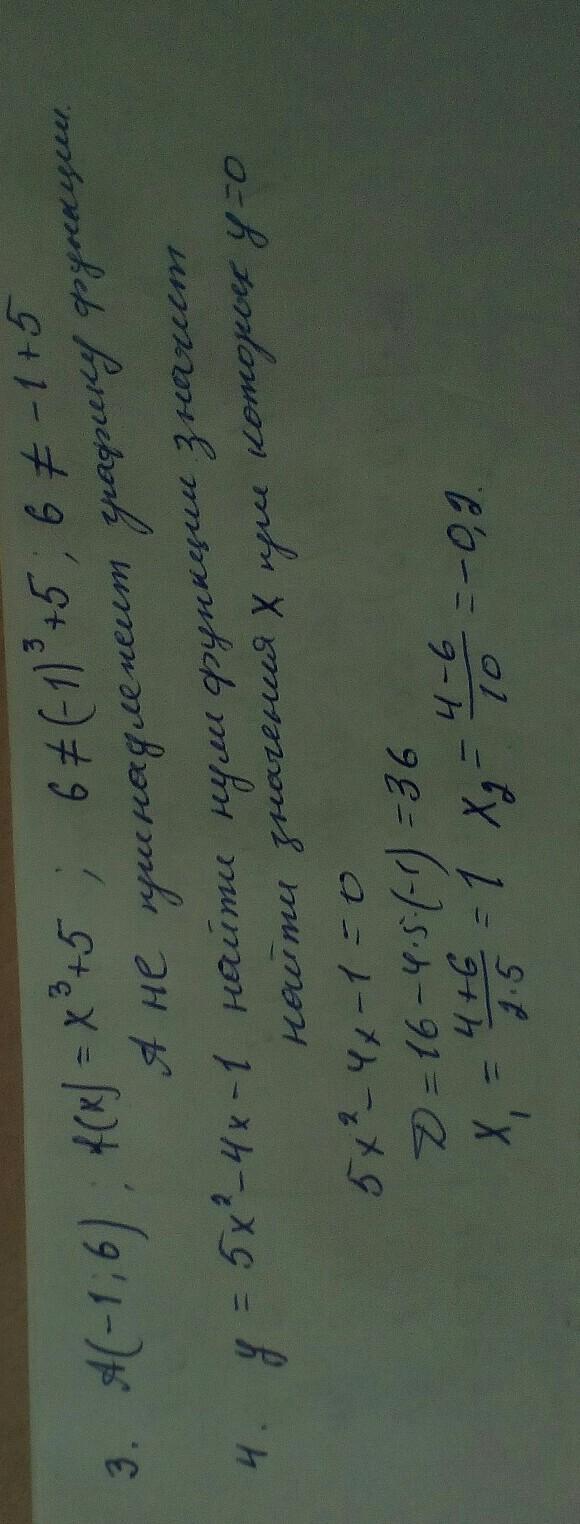 3. A(-1; 6); f(x) = x³+5 ; 6 ≠ (-1)³+5; 6 ≠ -1+5
A не принадлежит графику функции.
4. y = 5x²-4x-1 найти нули функции значит
найти значения x при которых y=0
5x²-4x-1=0
D=16-4·5·(-1)=36
x₁ = (4+6)/(2·5) = 1 x₂ = (4-6)/10 = -0,2.